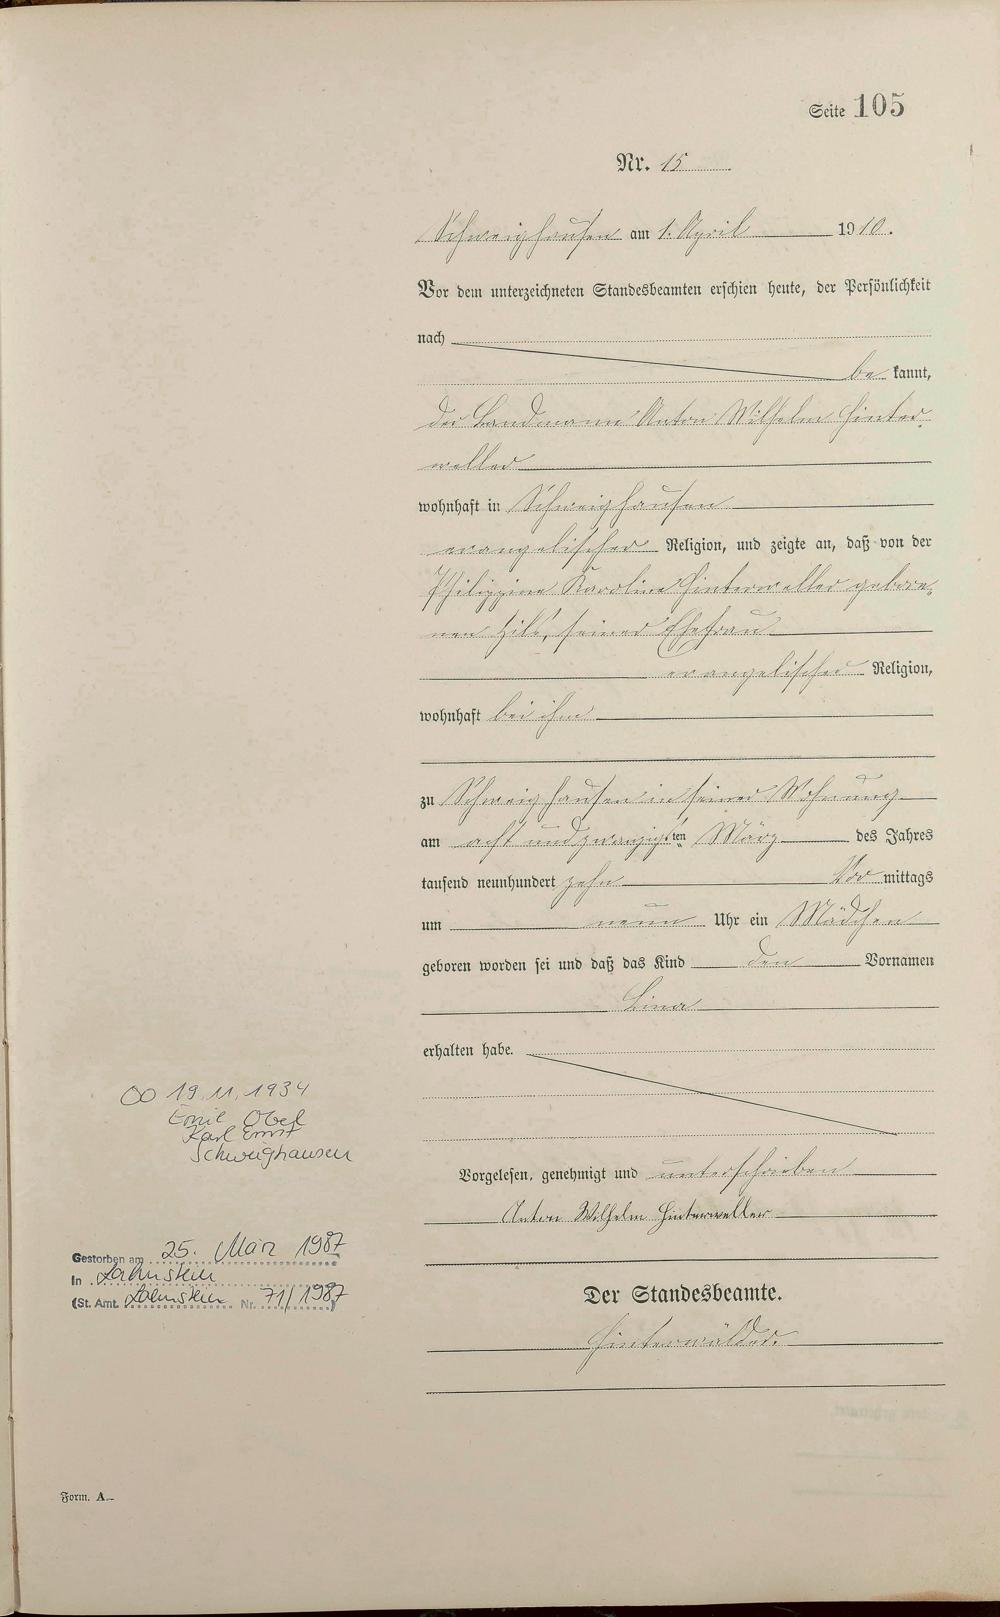 Seite 105
Nr. 15
Schweighausen am 1. April 1910.
Vor dem unterzeichneten Standesbeamten erschien heute, der Persönlichkeit
nach
be kannt,
der Landmann Anton Wilhelm Hinter-
weller
wohnhaft in Schweighausen
evangelischer Religion, und zeigte an, daß von der
Philippine Karoline Hinterweller gebore-
nen Hill, seiner Ehefrau
evangelischer Religion,
wohnhaft bei ihm
zu Schweighausen in seiner Wohnung
am acht und zwanzigsten März des Jahres
tausend neunhundert zehn Vor mittags
um neun Uhr ein Mädchen
geboren worden sei und daß das Kind den Vornamen
Lina
erhalten habe.
Vorgelesen, genehmigt und unterschrieben
Anton Wilhelm Hinterweller
Der Standesbeamte.
Hinterwälder.
OO 19.11.1934
Emil Obel
Karl Ernst
Schweighausen
Gestorben am 25. März 1987
In Lahnstein
(St. Amt. Lahnstein Nr. 71/1987)
Form. A.